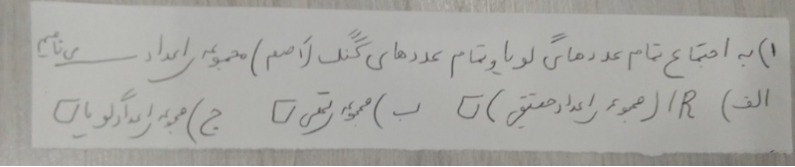 ۱) به اجتماع تمام عددهای گویا و تمام عددهای گنگ (اصم) مجموعه اعداد ـــــــ می نامیم
الف) IR (مجموعه اعداد حقیقی) □ ب) مجموعه تهی □ ج) مجموعه اعداد گویا □